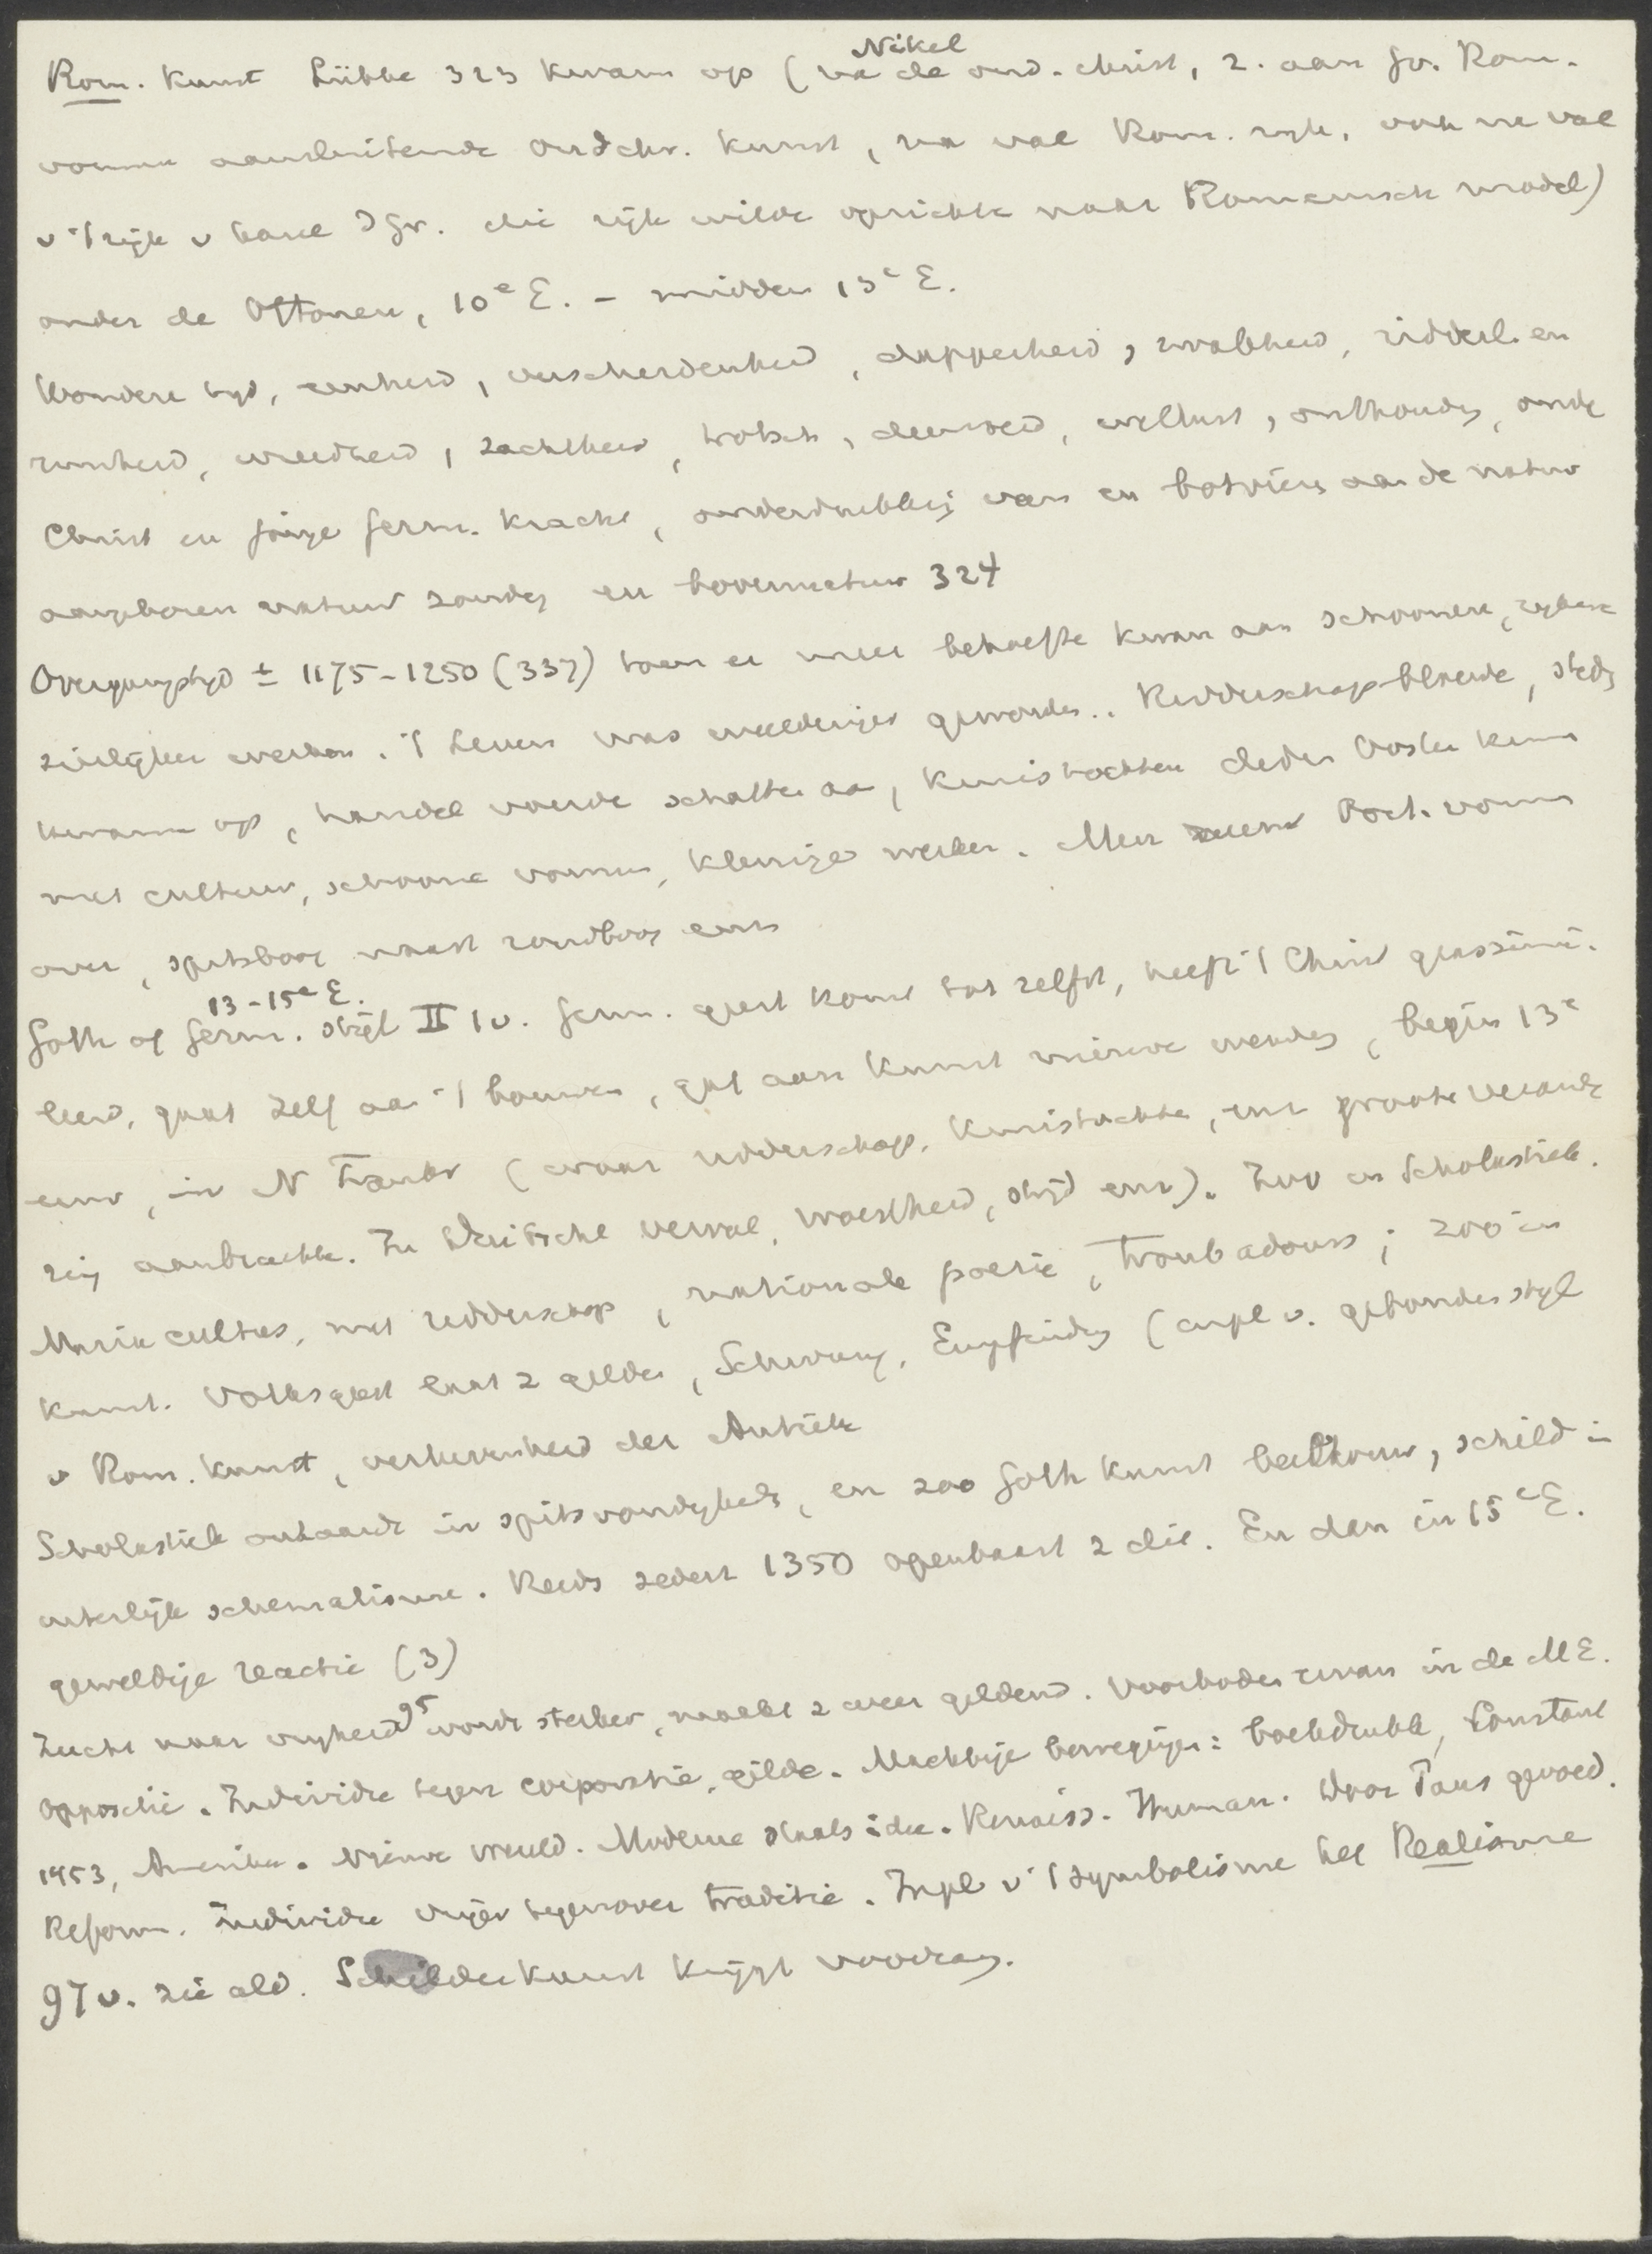 Nikel
Rom. Kunst Lübke 323 kwam op (na de oud-christ, z. aan Gr. Rom.
vormen aansluitende oudchr. kunst, na val Rom. rijk, ook na val
v 't rijk v Karel d Gr. die rijk wilde oprichten naar Romeinsch model)
onder de Ottonen, 10e E. - midden 13e E.
Wondere tijd, eenheid, verscheidenheid, dapperheid, zwakheid, ridderl. en
ruwheid, wreedheid, zachtheid, trotsch, deemoed, wellust, onthouding, oude
Christ en jonge Germ. kracht, onderdrukking van en botvieren aan de natuur
aangeboren natuur zonder en bovennatuur 324
Overgangstijd ± 1175-1250 (337) toen er meer behoefte kwam aan schoonere, rijkere
sierlijker werken. 't Leven was weelderiger geworden. Ridderschap bloeide, steden
kwamen op, handel voerde schatten aan, kruistochten deden Oosten kennen
met cultuur, schoone vormen, kleurige werken. Men nam Oost. vormen
over, spitsboog naast rondboog enz
13-15e E.
Goth of Germ. stijl II 1v. Germ. geest komt tot zelfst, heeft 't Christ geassimi-
leerd, gaat zelf aan 't bouwen, gaf aan kunst nieuwe wending, begin 13e
eeuw, in N Frankr (waar ridderschap, kruistochten, enz groote verande
ring aanbrachten. In Duitschl verval, woestheid, strijd enz). Zoo in Scholastiek.
Maria cultus, met ridderschap, nationale poezie, troubadours; zoo in
kunst. Volksgeest laat z gelden, Schwung, Empfinden (in pl v. gebonden stijl
v Rom. kunst, verhevenheid der Antieke
Scholastiek ontaardt in spitsvondigheden, en zoo Goth kunst beeldhouw, schild in
uiterlijk schematisme. Reeds sedert 1350 openbaart z die. En dan in 15e E.
geweldige reactie (3)
95
Zucht naar vrijheid wordt sterker, maakt z weer geldend. Voorboden ervan in de ME.
oppositie. Individu tegen corporatie, gilde. Machtige bewegingen: boekdrukk, Constant
1453, Amerika. Nieuwe wereld. Moderne staats idee. Renaiss. Human. door Paus gevoed.
Reform. Individu vrijer tegenover traditie. In pl v 't symbolisme het Realisme
97 v. zie ald. Schilderkunst krijgt voorrang.